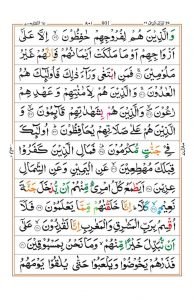 801 ٨٠١
وَالَّذِيْنَ هُمْ لِفُرُوْجِهِمْ حٰفِظُوْنَ ۙ اِلَّا عَلٰٓى
اَزْوَاجِهِمْ اَوْ مَا مَلَكَتْ اَيْمَانُهُمْ فَاِنَّهُمْ غَيْرُ
مَلُوْمِيْنَ ۚ فَمَنِ ابْتَغٰى وَرَآءَ ذٰلِكَ فَاُولٰٓئِكَ هُمُ
الْعٰدُوْنَ ۚ وَالَّذِيْنَ هُمْ لِاَمٰنٰتِهِمْ وَعَهْدِهِمْ رٰعُوْنَ
وَالَّذِيْنَ هُمْ بِشَهٰدٰتِهِمْ قَآئِمُوْنَ ۙ وَالَّذِيْنَ
هُمْ عَلٰى صَلَاتِهِمْ يُحَافِظُوْنَ ۭ اُولٰٓئِكَ
فِيْ جَنّٰتٍ مُّكْرَمُوْنَ ۭ فَمَالِ الَّذِيْنَ كَفَرُوْا
قِبَلَكَ مُهْطِعِيْنَ ۙ عَنِ الْيَمِيْنِ وَعَنِ الشِّمَالِ
عِزِيْنَ اَيَطْمَعُ كُلُّ امْرِئٍ مِّنْهُمْ اَنْ يُّدْخَلَ جَنَّةَ
نَعِيْمٍ ۙ كَلَّا ۭ اِنَّا خَلَقْنٰهُمْ مِّمَّا يَعْلَمُوْنَ فَلَآ
اُقْسِمُ بِرَبِّ الْمَشٰرِقِ وَالْمَغٰرِبِ اِنَّا لَقٰدِرُوْنَ ۙ عَلٰٓى
اَنْ نُّبَدِّلَ خَيْرًا مِّنْهُمْ ۙ وَمَا نَحْنُ بِمَسْبُوْقِيْنَ
فَذَرْهُمْ يَخُوْضُوْا وَيَلْعَبُوْا حَتّٰى يُلٰقُوْا يَوْمَهُمُ